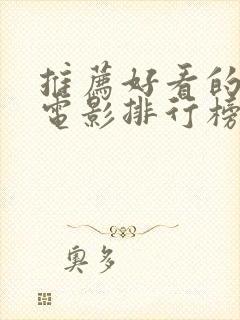 推薦好看的
電影排行榜
奧多